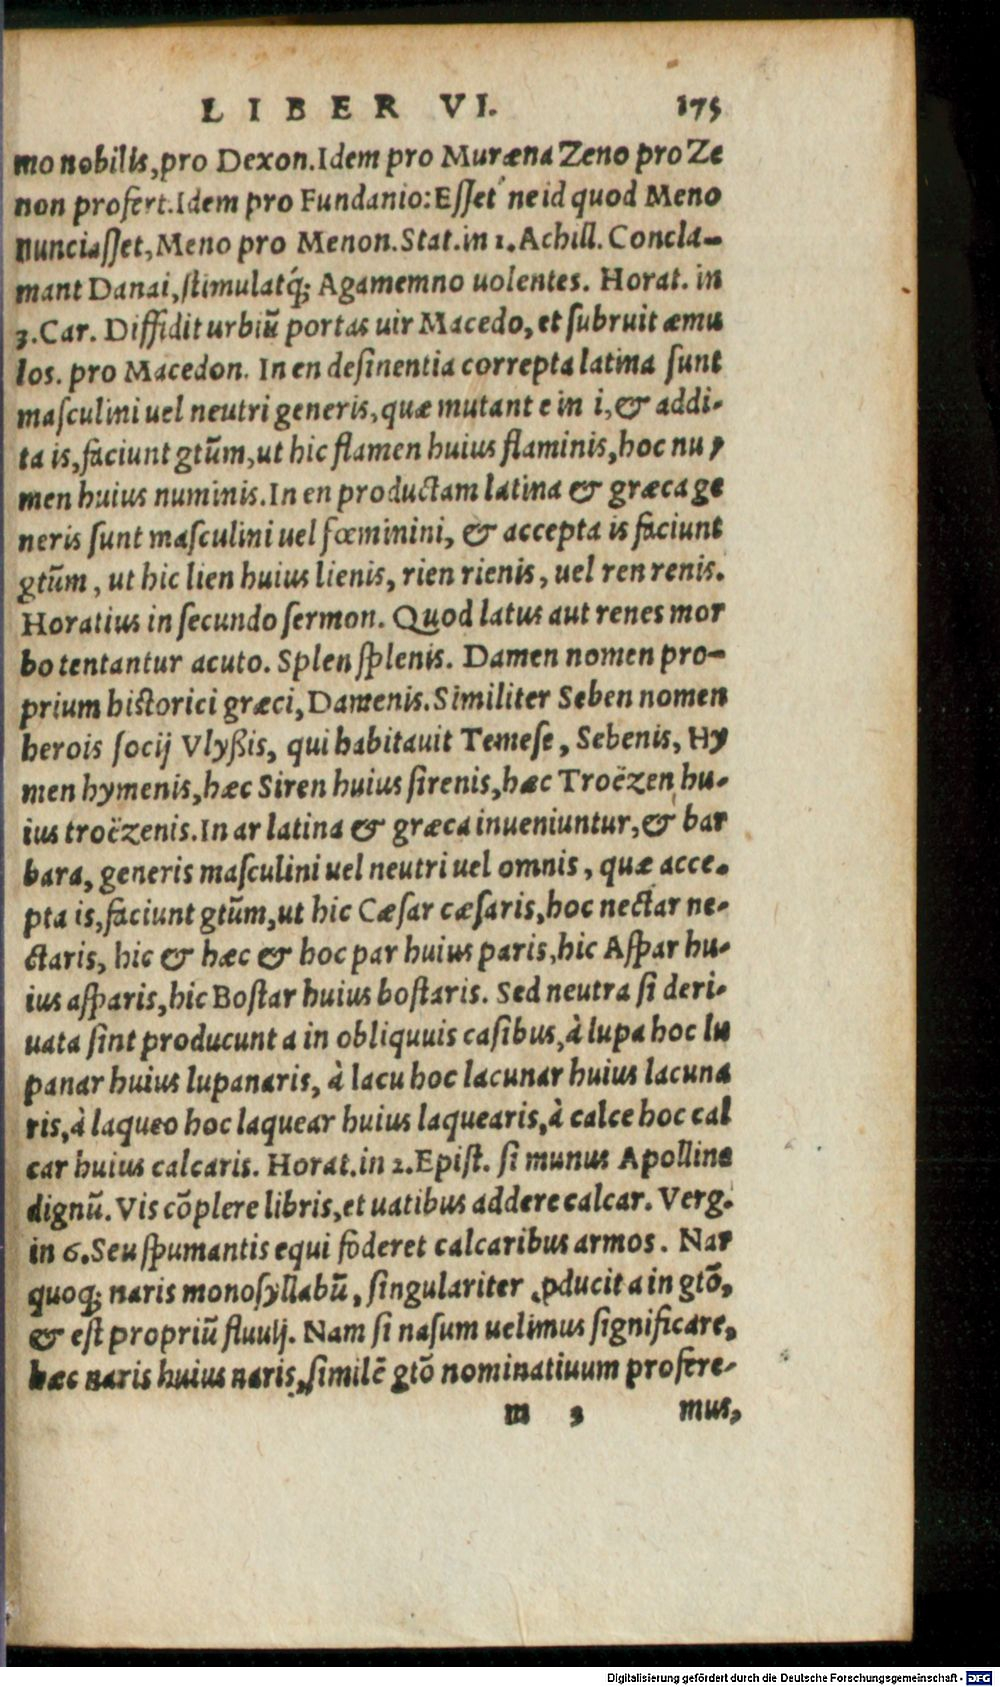 LIBER VI. 175
mo nobilis, pro Dexon. Idem pro Muræna Zeno pro Ze
non profert. Idem pro Fundanio: Esset ne id quod Meno
nunciasset, Meno pro Menon. Stat. in 1. Achill. Concla-
mant Danai, stimulatq́; Agamemno uolentes. Horat. in
3. Car. Diffidit urbiũ portas uir Macedo, et subruit æmu
los. pro Macedon. In en desinentia correpta latina sunt
masculini uel neutri generis, quæ mutant e in i, & addi-
ta is, faciunt gtũm, ut hic flamen huius flaminis, hoc nu
men huius numinis. In en productam latina & græca ge
neris sunt masculini uel fœminini, & accepta is faciunt
gtũm, ut hic lien huius lienis, rien rienis, uel ren renis.
Horatius in secundo sermon. Quod latus aut renes mor
bo tentantur acuto. Splen splenis. Damen nomen pro-
prium historici græci, Damenis. Similiter Seben nomen
herois socij Vlyßis, qui habitauit Temese, Sebenis, Hy
men hymenis, hæc Siren huius sirenis, hæc Troëzen hu-
ius troëzenis. In ar latina & græca inueniuntur, & bar
bara, generis masculini uel neutri uel omnis, quæ acce-
pta is, faciunt gtũm, ut hic Cæsar cæsaris, hoc nectar ne-
ctaris, hic & hæc & hoc par huius paris, hic Aspar hu-
ius asparis, hic Bostar huius bostaris. Sed neutra si deri-
uata sint producunt a in obliquuis casibus, à lupa hoc lu
panar huius lupanaris, à lacu hoc lacunar huius lacuna
ris, à laqueo hoc laquear huius laquearis, à calce hoc cal
car huius calcaris. Horat. in 2. Epist. si munus Apolline
dignũ. Vis cõplere libris, et uatibus addere calcar. Verg.
in 6. Seu spumantis equi foderet calcaribus armos. Nar
quoq; naris monosyllabũ, singulariter ꝓducit a in gtõ,
& est propriũ fluuij. Nam si nasum uelimus significare,
hæc naris huius naris, similẽ gtõ nominatiuum profere-
m 3 mus,
Digitalisierung gefördert durch die Deutsche Forschungsgemeinschaft - DFG